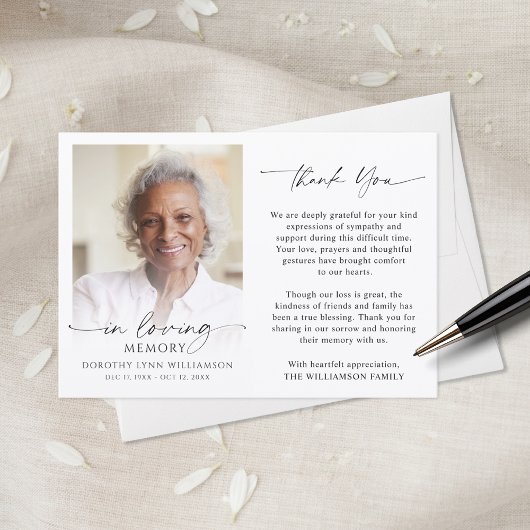 in loving
MEMORY
DOROTHY LYNN WILLIAMSON
DEC 17, 19XX - OCT 12, 20XX
Thank You
We are deeply grateful for your kind
expressions of sympathy and
support during this difficult time.
Your love, prayers and thoughtful
gestures have brought comfort
to our hearts.
Though our loss is great, the
kindness of friends and family has
been a true blessing. Thank you for
sharing in our sorrow and honoring
their memory with us.
With heartfelt appreciation,
THE WILLIAMSON FAMILY